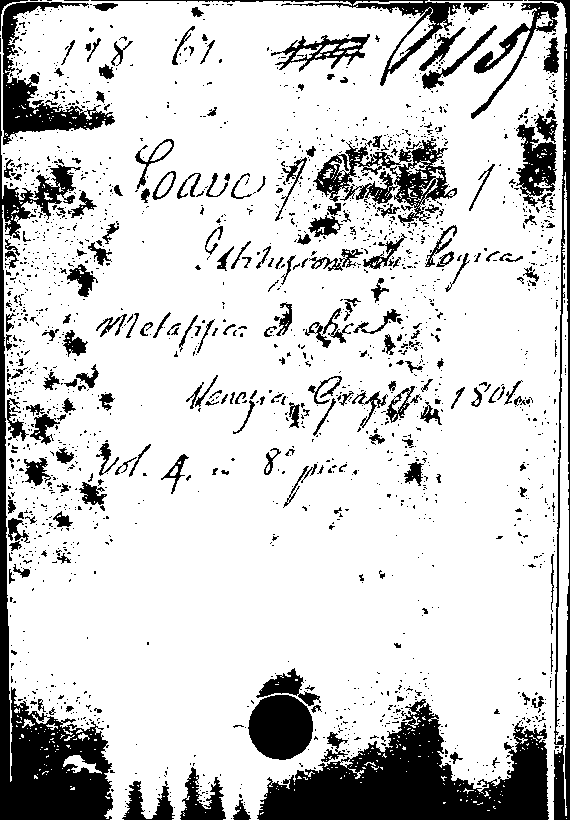 178. 61. (1115)
Soave (Francesco)
Istituzioni di Logica
Metafisica ed etica
Venezia, Graziosi, 1801.
Vol. 4. in 8.° picc.